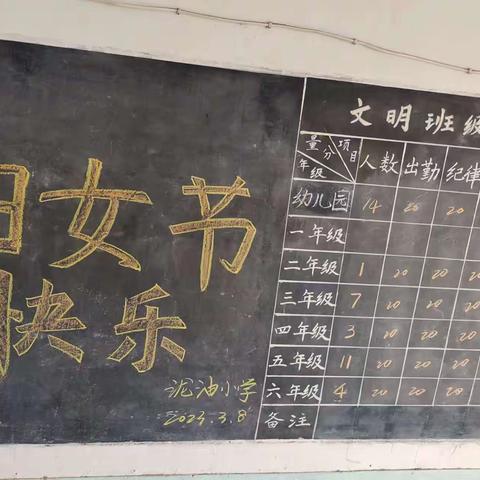 妇女节
快乐
泥油小学
2023.3.8
文明班级
量分 项目
年级
人数 出勤 纪律
幼儿园 14 20 20
一年级
二年级 1 20 20 20
三年级 7 20 20 20
四年级 3 20 20 20
五年级 11 20 20 20
六年级 4 20 20 20
备注